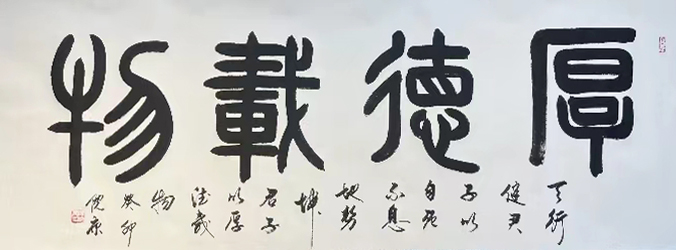 厚德載物
天行
健君
子以
自强
不息
地势
坤
君子
以厚
德载
物
癸卯